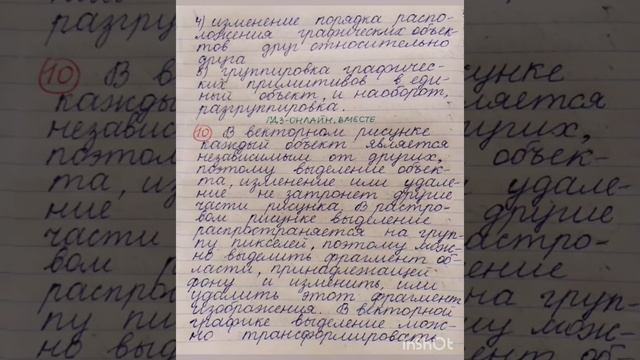 4) изменение порядка распо-
ложения графических объек-
тов друг относительно
друга
5) группировка графичес-
ких примитивов в еди-
ный объект, и наоборот,
разгруппировка.
ГДЗ-ОНЛАЙН. ВМЕСТЕ
10 В векторном рисунке
каждый объект является
независимым от других,
поэтому выделение объек-
та, изменение или удале-
ние не затронет другие
части рисунка. В растро-
вом рисунке выделение
распространяется на груп-
пу пикселей, поэтому мож-
но выделить фрагмент об
ласти, принадлежащей
фону и изменить, или
удалить этот фрагмент
изображения. В векторной
графике выделение мож-
но трансформировать
InShot